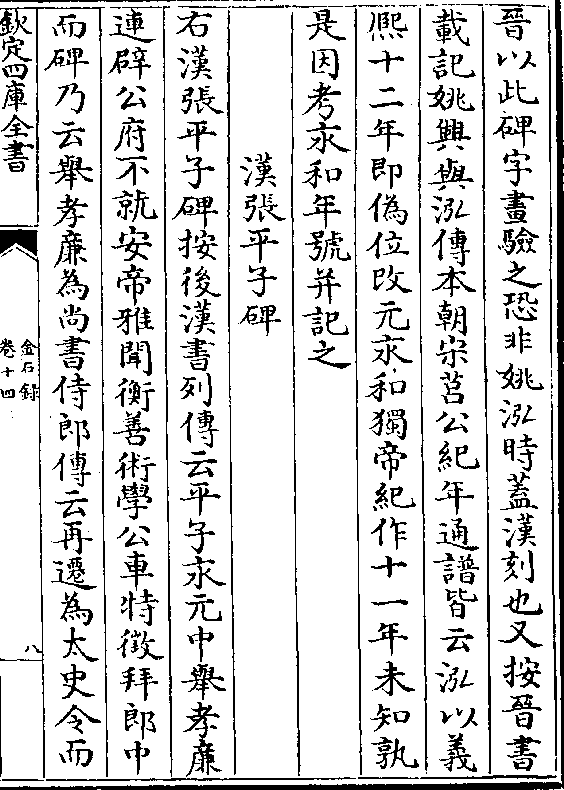 晉以此碑字畫驗之恐非姚泓時蓋漢刻也又按晉書
載記姚興與泓傳本朝宋莒公紀年通譜皆云泓以義
熈十二年即偽位改元永和獨帝紀作十一年未知孰
是因考永和年號并記之
漢張平子碑
右漢張平子碑按後漢書列傳云平子永元中舉孝廉
連辟公府不就安帝雅聞衡善術學公車特徴拜郎中
而碑乃云舉孝廉為尚書侍郎傳云再遷為太史令而
欽定四庫全書
金石録
卷十四
八